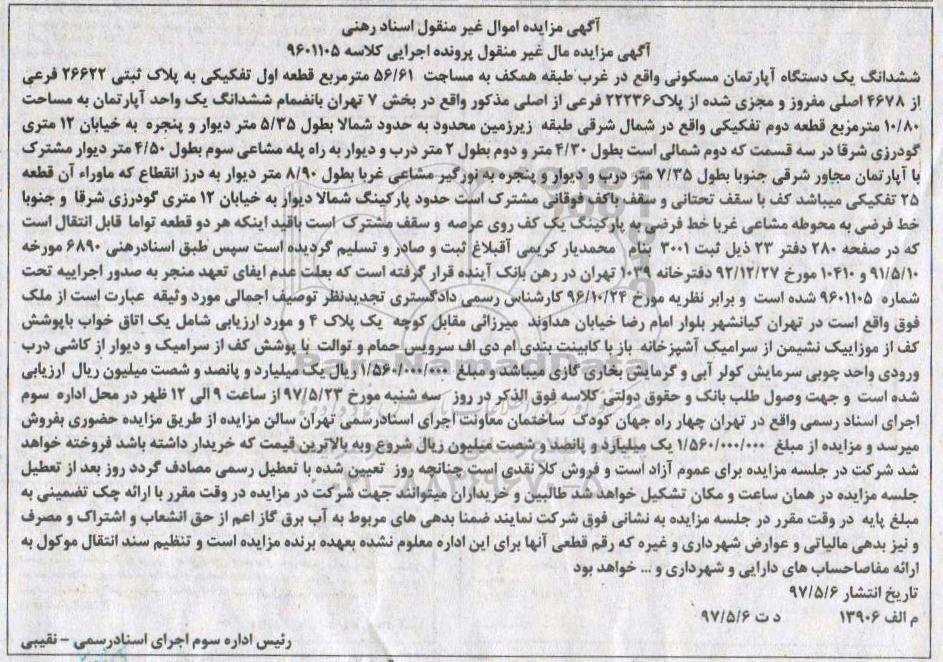 آگهی مزایده اموال غیر منقول اسناد رهنی
آگهی مزایده مال غیر منقول پرونده اجرایی کلاسه ۹۶۰۱۱۰۵
ششدانگ یک دستگاه آپارتمان مسکونی واقع در غرب طبقه همکف به مساحت ۵۶/۶۱ مترمربع قطعه اول تفکیکی به پلاک ثبتی ۲۶۶۲۲ فرعی
از ۴۶۷۸ اصلی مفروز و مجزی شده از پلاک۲۲۲۳۶ فرعی از اصلی مذکور واقع در بخش ۷ تهران بانضمام ششدانگ یک واحد آپارتمان به مساحت
۱۰/۸۰ مترمربع قطعه دوم تفکیکی واقع در شمال شرقی طبقه زیرزمین محدود به حدود شمالا بطول ۵/۳۵ متر دیوار و پنجره به خیابان ۱۲ متری
گودرزی شرقا در سه قسمت که دوم شمالی است بطول ۴/۳۰ متر و دوم بطول ۲ متر درب و دیوار به راه پله مشاعی سوم بطول ۴/۵۰ متر دیوار مشترک
با آپارتمان مجاور شرقی جنوبا بطول ۷/۳۵ متر درب و دیوار و پنجره به نورگیر مشاعی غربا بطول ۸/۹۰ متر دیوار به درز انقطاع که ماوراء آن قطعه
۲۵ تفکیکی میباشد کف با سقف تحتانی و سقف باکف فوقانی مشترک است حدود پارکینگ شمالا دیوار به خیابان ۱۲ متری گودرزی شرقا و جنوبا
خط فرضی به محوطه مشاعی غربا خط فرضی به پارکینگ یک کف روی عرصه و سقف مشترک است باقید اینکه هر دو قطعه تواما قابل انتقال است
که در صفحه ۲۸۰ دفتر ۲۳ ذیل ثبت ۳۰۰۱ بنام محمدیار کریمی آقبلاغ ثبت و صادر و تسلیم گردیده است سپس طبق اسنادرهنی ۶۸۹۰ مورخه
۹۱/۵/۱۰ و ۱۰۴۱۰ مورخ ۹۲/۱۲/۲۷ دفترخانه ۱۰۳۹ تهران در رهن بانک آینده قرار گرفته است که بعلت عدم ایفای تعهد منجر به صدور اجراییه تحت
شماره ۹۶۰۱۱۰۵ شده است و برابر نظریه مورخ ۹۶/۱۰/۲۴ کارشناس رسمی دادگستری تجدیدنظر توصیف اجمالی مورد وثیقه عبارت است از ملک
فوق واقع است در تهران کیانشهر بلوار امام رضا خیابان هداوند میرزائی مقابل کوچه یک پلاک ۴ و مورد ارزیابی شامل یک اتاق خواب باپوشش
کف از موزاییک نشیمن از سرامیک آشپزخانه باز با کابینت بندی ام دی اف سرویس حمام و توالت با پوشش کف از سرامیک و دیوار از کاشی درب
ورودی واحد چوبی سرمایش کولر آبی و گرمایش بخاری گازی میباشد و مبلغ ۱/۵۶۰/۰۰۰/۰۰۰ ریال یک میلیارد و پانصد و شصت میلیون ریال ارزیابی
شده است و جهت وصول طلب بانک و حقوق دولتی کلاسه فوق الذکر در روز سه شنبه مورخ ۹۷/۵/۲۳ از ساعت ۹ الی ۱۲ ظهر در محل اداره سوم
اجرای اسناد رسمی واقع در تهران چهار راه جهان کودک ساختمان معاونت اجرای اسنادرسمی تهران سالن مزایده از طریق مزایده حضوری بفروش
میرسد و مزایده از مبلغ ۱/۵۶۰/۰۰۰/۰۰۰ یک میلیارد و پانصد و شصت میلیون ریال شروع وبه بالاترین قیمت که خریدار داشته باشد فروخته خواهد
شد شرکت در جلسه مزایده برای عموم آزاد است و فروش کلا نقدی است چنانچه روز تعیین شده با تعطیل رسمی مصادف گردد روز بعد از تعطیل
جلسه مزایده در همان ساعت و مکان تشکیل خواهد شد طالبین و خریداران میتوانند جهت شرکت در مزایده در وقت مقرر با ارائه چک تضمینی به
مبلغ پایه در وقت مقرر در جلسه مزایده به نشانی فوق شرکت نمایند ضمنا بدهی های مربوط به آب برق گاز اعم از حق انشعاب و اشتراک و مصرف
و نیز بدهی مالیاتی و عوارض شهرداری و غیره که رقم قطعی آنها برای این اداره معلوم نشده بعهده برنده مزایده است و تنظیم سند انتقال موکول به
ارائه مفاصاحساب های دارایی و شهرداری و ... خواهد بود
تاریخ انتشار ۹۷/۵/۶
م الف ۱۳۹۰۶ د ت ۹۷/۵/۶
رئیس اداره سوم اجرای اسنادرسمی - نقیبی
ParsNamadData